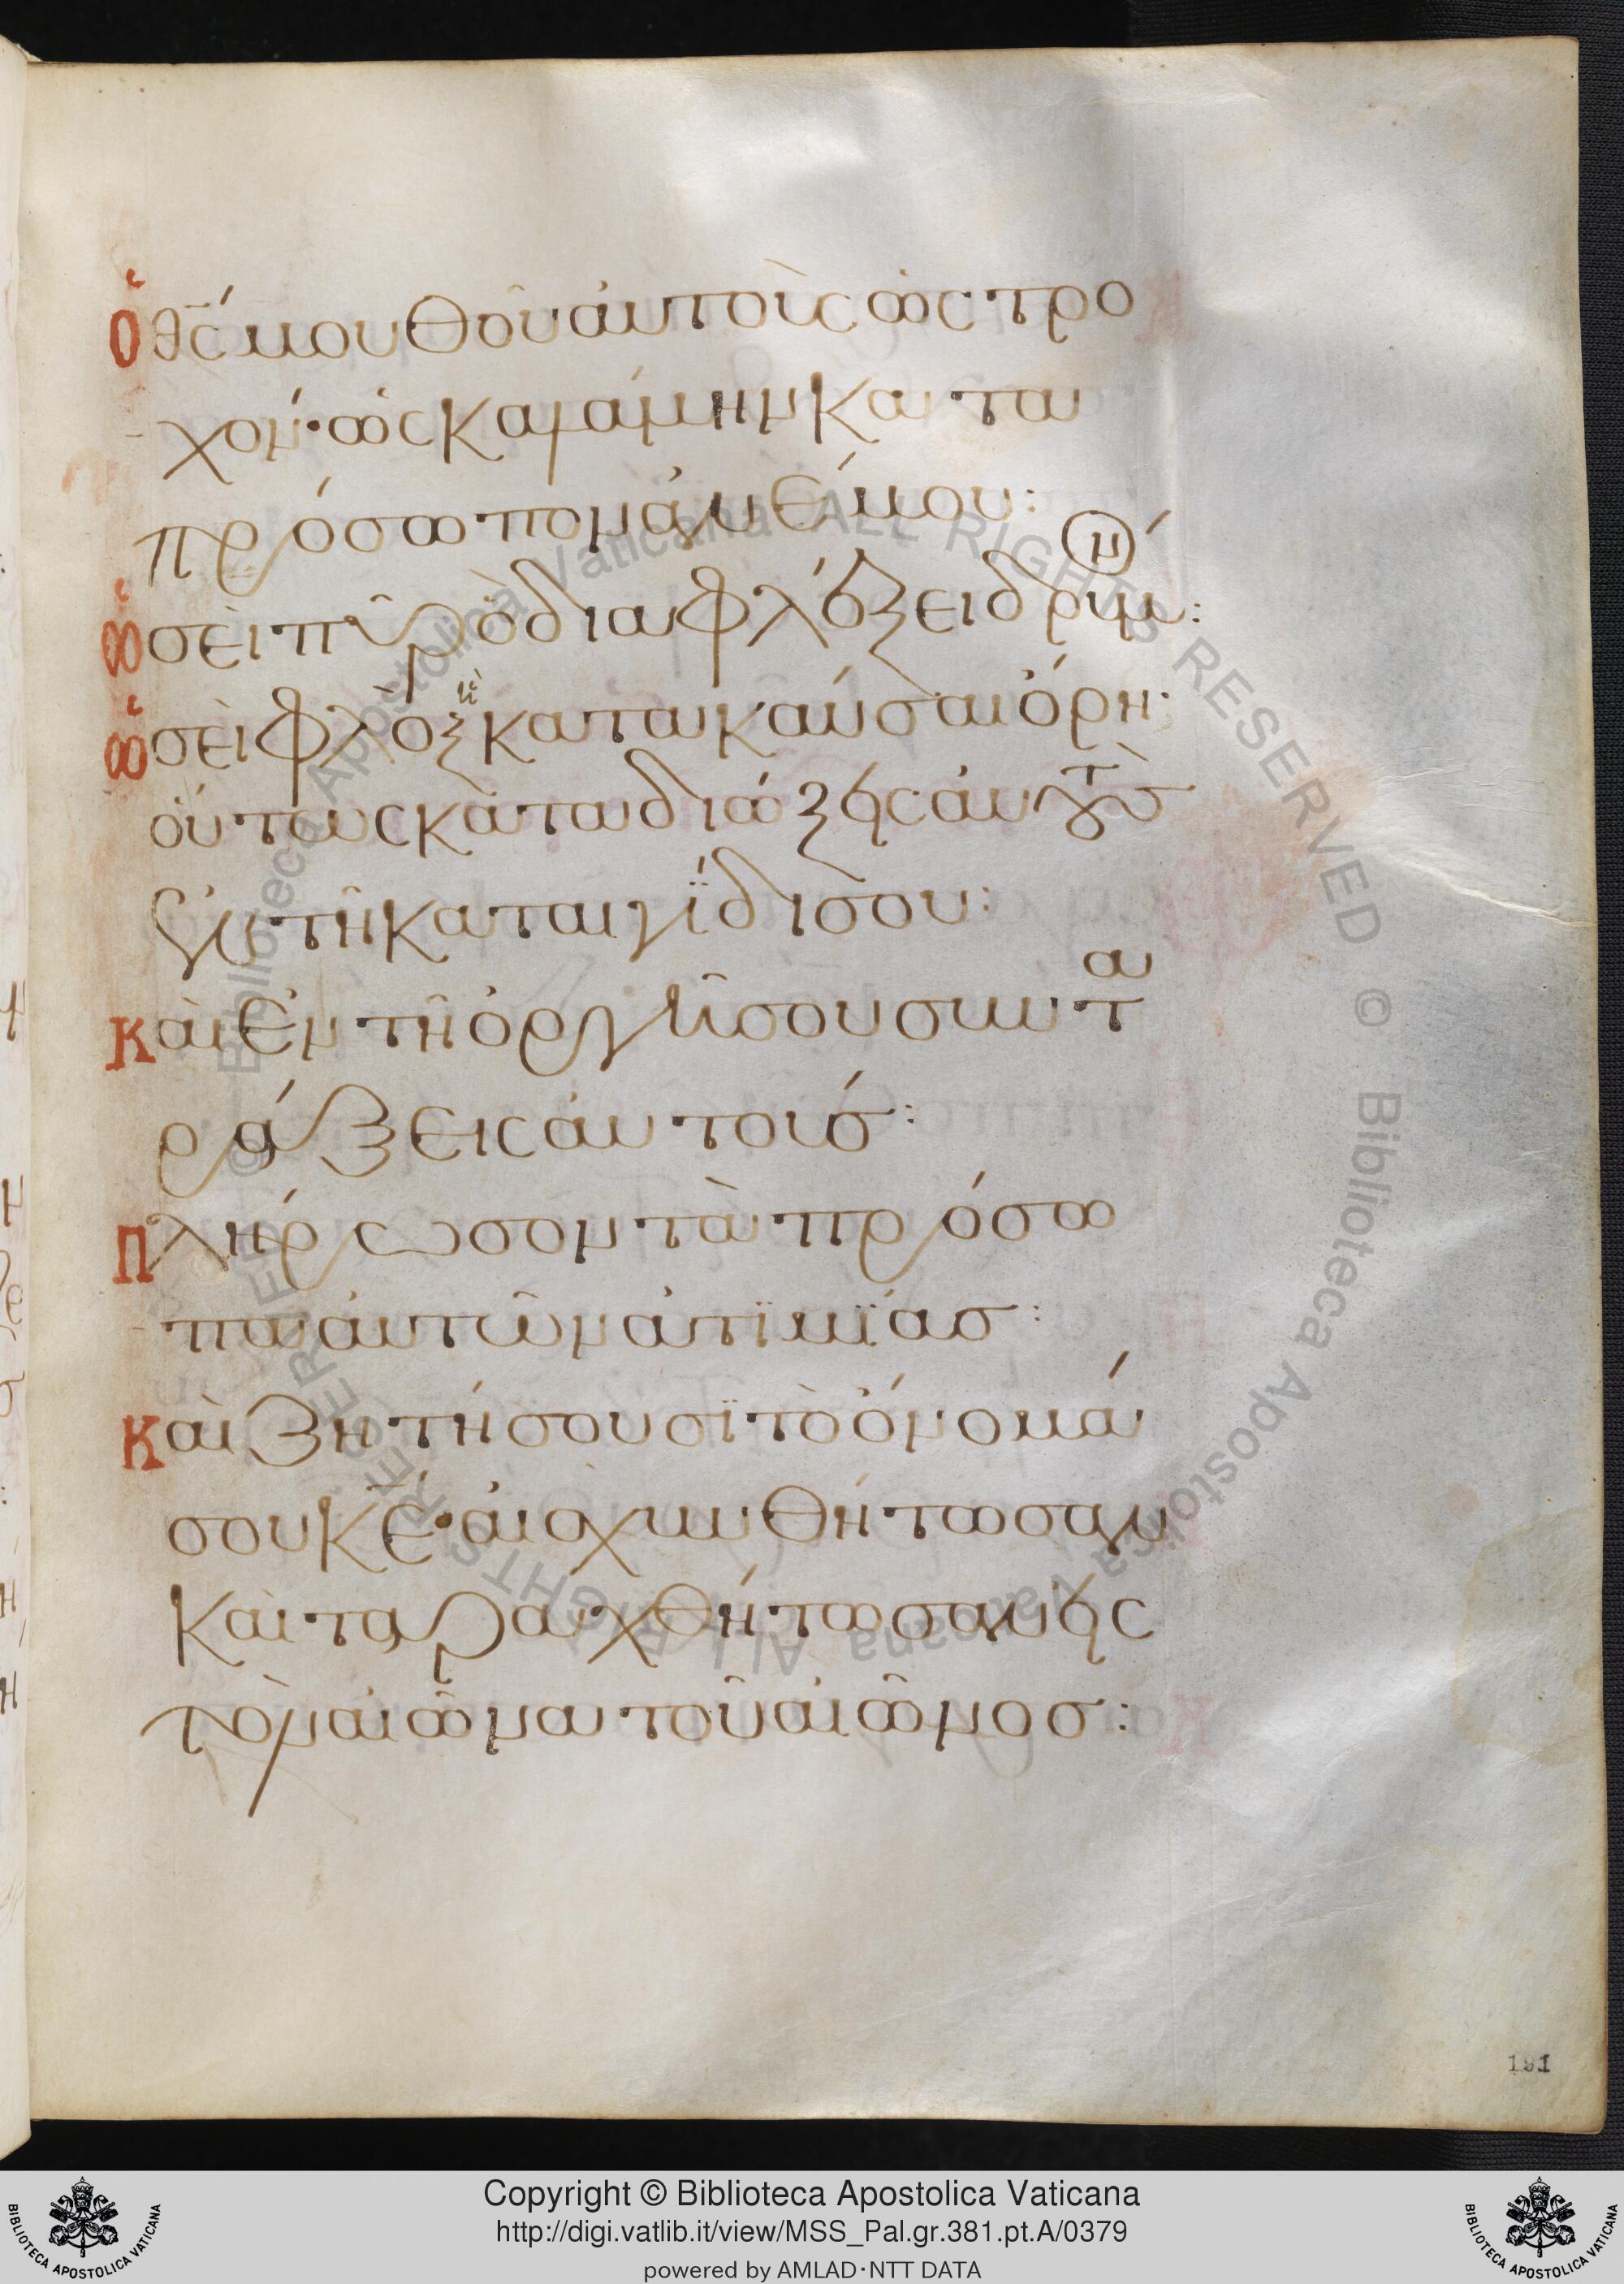 Ὁ θς μου θοῦ αὐτοὺς ὡς τρο
χόν· ὡς καλάμην κατα
πρόσωπον ἀνέμου:
Ὡσεὶ πῦρ ὃ διαφλέξει δρυμ(όν):
Ὡσεὶ φλὸξ ἡ κατακαύσαι ὄρη:
οὕτως καταδιώξεις αὐτοὺσ
ἐν τῆ καταιγίδι σου:
Καὶ ἐν τῆ ὀργῆ σου συντα
ράξεις αὐτούσ:
Πλήρωσον τὰ πρόσω
πα αὐτῶν ἀτιμίασ:
Καὶ ζητήσουσι τὸ ὄνομά
σου κε· αἰσχυνθήτωσαν
καὶ ταραχθήτωσαν εἰς
τὸν αἰῶνα τοῦ αἰῶνοσ:
191
Copyright © Biblioteca Apostolica Vaticana
http://digi.vatlib.it/view/MSS_Pal.gr.381.pt.A/0379
powered by AMLAD·NTT DATA
BIBLIOTECA APOSTOLICA VATICANA
BIBLIOTECA APOSTOLICA VATICANA